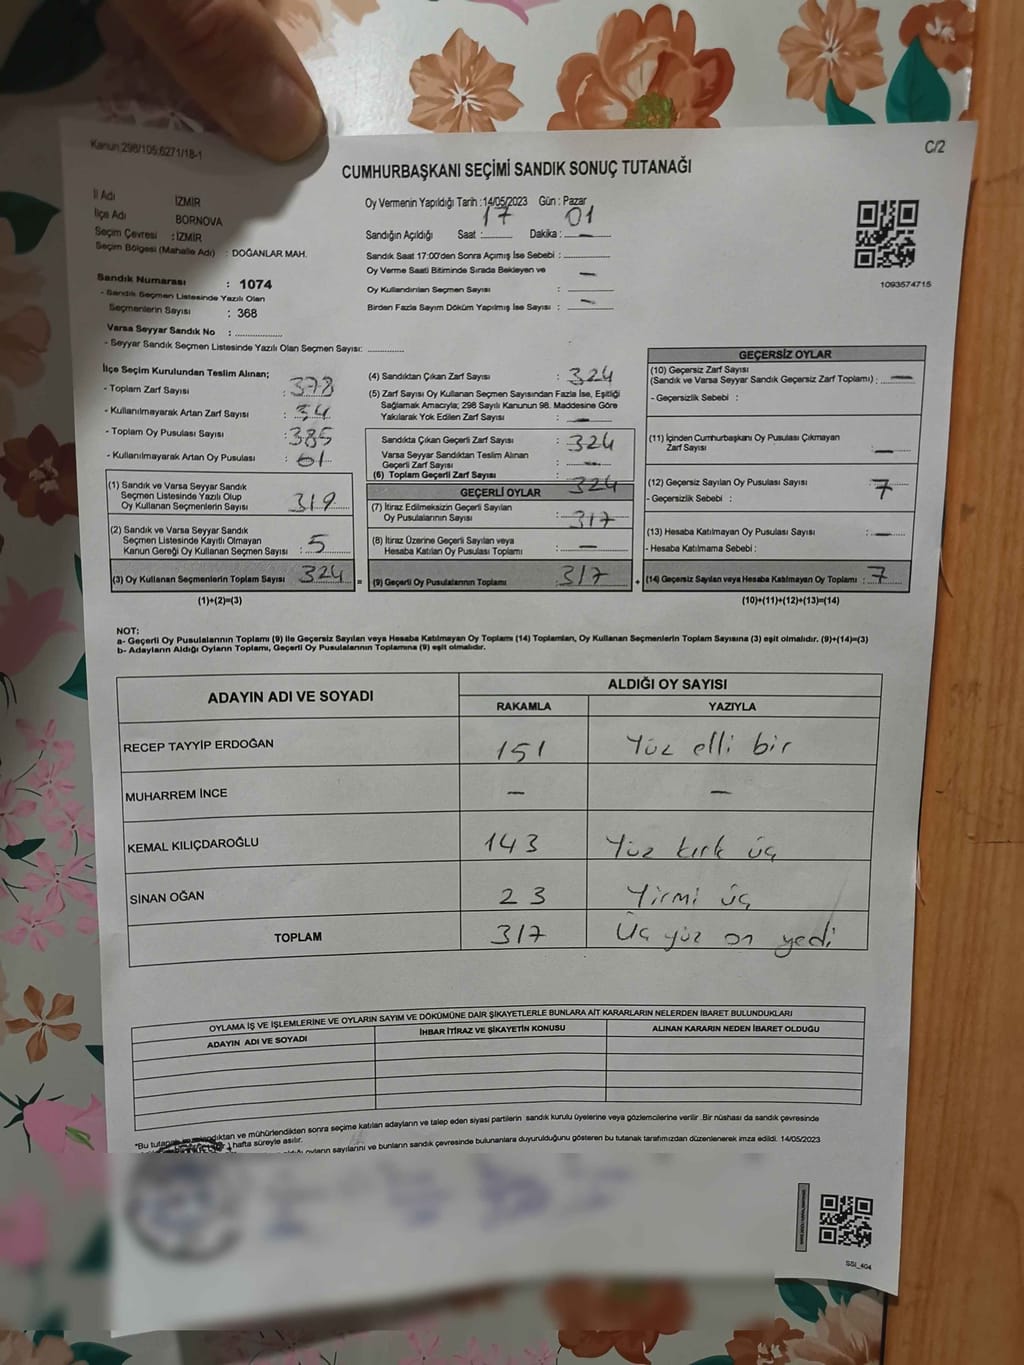 Kanun:298/105;6271/18-1
C/2
CUMHURBAŞKANI SEÇİMİ SANDIK SONUÇ TUTANAĞI
İl Adı İZMİR
İlçe Adı BORNOVA
Seçim Çevresi : İZMİR
Seçim Bölgesi (Mahalle Adı) : DOĞANLAR MAH.
Sandık Numarası : 1074
- Sandık Seçmen Listesinde Yazılı Olan
Seçmenlerin Sayısı : 368
Varsa Seyyar Sandık No :
- Seyyar Sandık Seçmen Listesinde Yazılı Olan Seçmen Sayısı:
Oy Vermenin Yapıldığı Tarih :14/05/2023 Gün : Pazar
Sandığın Açıldığı Saat : 17 Dakika : 01
Sandık Saat 17:00'den Sonra Açımış İse Sebebi :
Oy Verme Saati Bitiminde Sırada Bekleyen ve —
Oy Kullandırılan Seçmen Sayısı :
Birden Fazla Sayım Döküm Yapılmış İse Sayısı : —
1093574715
İlçe Seçim Kurulundan Teslim Alınan;
- Toplam Zarf Sayısı : 378
- Kullanılmayarak Artan Zarf Sayısı : 54
- Toplam Oy Pusulası Sayısı : 385
- Kullanılmayarak Artan Oy Pusulası : 61
(1) Sandık ve Varsa Seyyar Sandık
Seçmen Listesinde Yazılı Olup
Oy Kullanan Seçmenlerin Sayısı : 319
(2) Sandık ve Varsa Seyyar Sandık
Seçmen Listesinde Kayıtlı Olmayan
Kanun Gereği Oy Kullanan Seçmen Sayısı : 5
(3) Oy Kullanan Seçmenlerin Toplam Sayısı 324 =
(1)+(2)=(3)
(4) Sandıktan Çıkan Zarf Sayısı : 324
(5) Zarf Sayısı Oy Kullanan Seçmen Sayısından Fazla İse, Eşitliği
Sağlamak Amacıyla; 298 Sayılı Kanunun 98. Maddesine Göre
Yakılarak Yok Edilen Zarf Sayısı : —
Sandıkta Çıkan Geçerli Zarf Sayısı : 324
Varsa Seyyar Sandıktan Teslim Alınan
Geçerli Zarf Sayısı : —
(6) Toplam Geçerli Zarf Sayısı : 324
GEÇERLİ OYLAR
(7) İtiraz Edilmeksizin Geçerli Sayılan
Oy Pusulalarının Sayısı : 317
(8) İtiraz Üzerine Geçerli Sayılan veya
Hesaba Katılan Oy Pusulası Toplamı : —
(9) Geçerli Oy Pusulalarının Toplamı : 317 +
GEÇERSİZ OYLAR
(10) Geçersiz Zarf Sayısı
(Sandık ve Varsa Seyyar Sandık Geçersiz Zarf Toplamı) : —
- Geçersizlik Sebebi :
(11) İçinden Cumhurbaşkanı Oy Pusulası Çıkmayan
Zarf Sayısı : —
(12) Geçersiz Sayılan Oy Pusulası Sayısı : 7
- Geçersizlik Sebebi :
(13) Hesaba Katılmayan Oy Pusulası Sayısı : —
- Hesaba Katılmama Sebebi :
(14) Geçersiz Sayılan veya Hesaba Katılmayan Oy Toplamı : 7
(10)+(11)+(12)+(13)=(14)
NOT:
a- Geçerli Oy Pusulalarının Toplamı (9) ile Geçersiz Sayılan veya Hesaba Katılmayan Oy Toplamı (14) Toplamları, Oy Kullanan Seçmenlerin Toplam Sayısına (3) eşit olmalıdır. (9)+(14)=(3)
b- Adayların Aldığı Oyların Toplamı, Geçerli Oy Pusulalarının Toplamına (9) eşit olmalıdır.
ADAYIN ADI VE SOYADI ALDIĞI OY SAYISI
RAKAMLA YAZIYLA
RECEP TAYYİP ERDOĞAN 151 Yüz elli bir
MUHARREM İNCE — —
KEMAL KILIÇDAROĞLU 143 Yüz kırk üç
SİNAN OĞAN 23 Yirmi üç
TOPLAM 317 Üç yüz on yedi
OYLAMA İŞ VE İŞLEMLERİNE VE OYLARIN SAYIM VE DÖKÜMÜNE DAİR ŞİKAYETLERLE BUNLARA AİT KARARLARIN NELERDEN İBARET BULUNDUKLARI
ADAYIN ADI VE SOYADI İHBAR İTİRAZ VE ŞİKAYETİN KONUSU ALINAN KARARIN NEDEN İBARET OLDUĞU
*Bu tutanak sonra seçime katılan adayların ve talep eden siyasi partilerin sandık kurulu üyelerine veya gözlemcilerine verilir .Bir nüshası da sandık çevresinde
hafta süreyle asılır.
oyların sayılarını ve bunların sandık çevresinde bulunanlara duyurulduğunu gösteren bu tutanak tarafımızdan düzenlenerek imza edildi. 14/05/2023
SSI_404